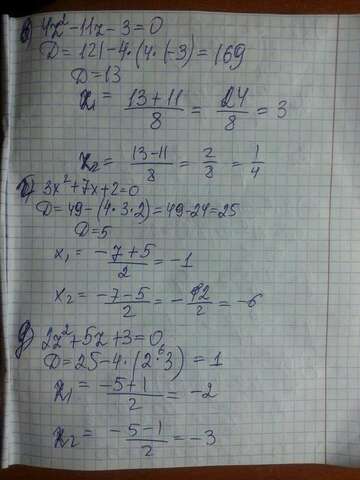 в) 4z² - 11z - 3 = 0
D = 121 - 4·(4·(-3) = 169
D = 13
z₁ = (13 + 11)/8 = 24/8 = 3
z₂ = (13 - 11)/8 = 2/8 = 1/4
б) 3x² + 7x + 2 = 0
D = 49 - (4·3·2) = 49 - 24 = 25
D = 5
x₁ = (-7 + 5)/2 = -1
x₂ = (-7 - 5)/2 = -12/2 = -6
д) 2z² + 5z + 3 = 0
D = 25 - 4·(2·⁶3) = 1
z₁ = (-5 + 1)/2 = -2
z₂ = (-5 - 1)/2 = -3